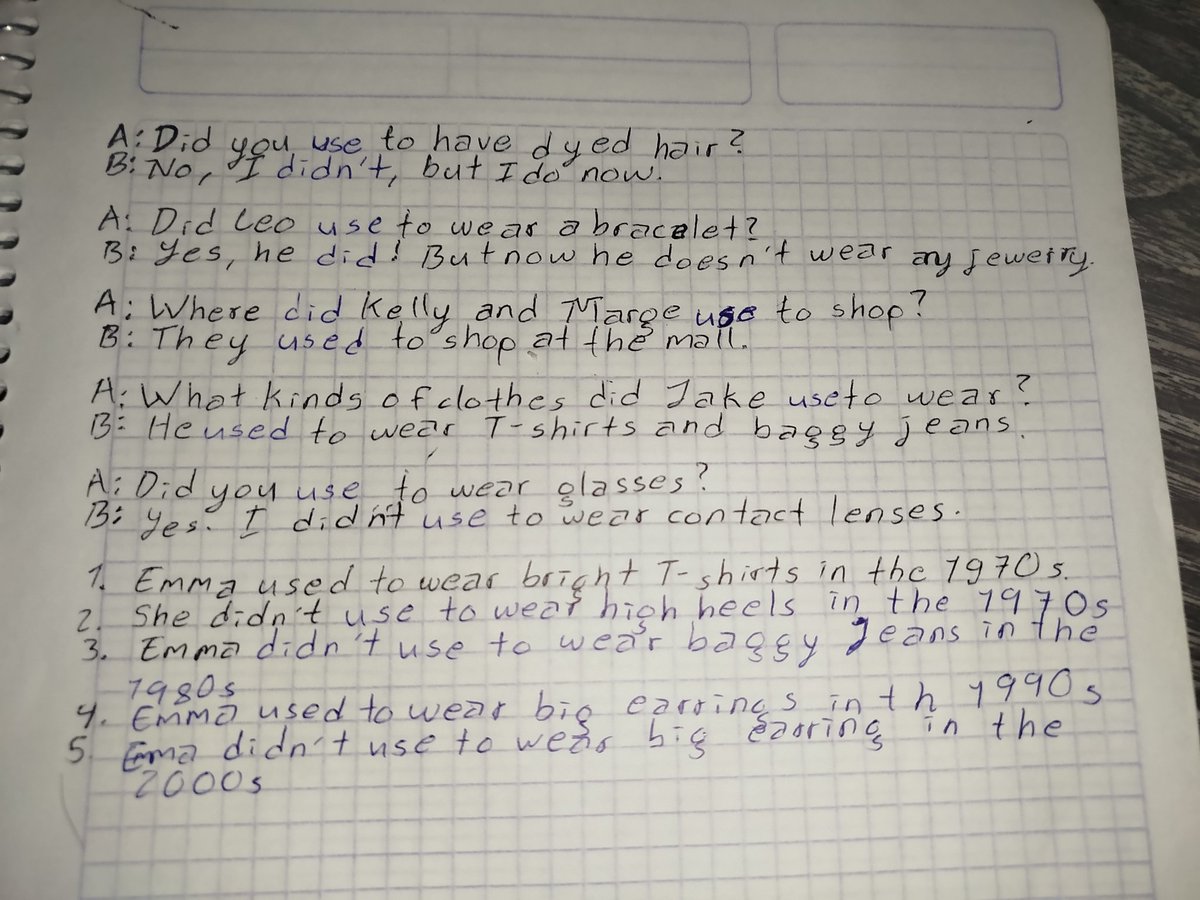 A: Did you use to have dyed hair?
B: No, I didn't, but I do now.
A: Did Leo use to wear a bracelet?
B: Yes, he did! But now he doesn't wear ay jewerry.
A: Where did Kelly and Marge use to shop?
B: They used to shop at the mall.
A: What kinds of clothes did Jake use to wear?
B: He used to wear T-shirts and baggy jeans.
A: Did you use to wear glasses?
B: Yes. I didn't use to wear contact lenses.
1. Emma used to wear bright T-shirts in the 1970s.
2. She didn't use to wear high heels in the 1970s
3. Emma didn't use to wear baggy Jeans in the
1980s
4. Emma used to wear big earrings in th 1990s
5. Ema didn't use to wear big earring in the
2000s